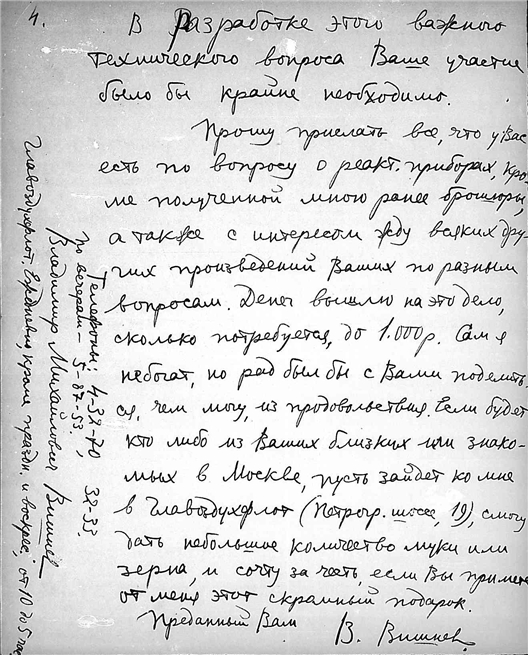 4.
В разработке этого важного
технического вопроса Ваше участие
было бы крайне необходимо.
Прошу прислать все, что у Вас
есть по вопросу о реакт. приборах, кро-
ме полученной мною ранее брошюры,
а также с интересом жду всяких дру-
гих произведений Ваших по разным
вопросам. Денег вышлю на это дело,
сколько потребуется, до 1.000 р. Сам я
небогат, но рад был бы с Вами поделить-
ся, чем могу, из продовольствия. Если будет
кто либо из Ваших близких или знако-
мых в Москве, пусть зайдет ко мне
в Главвоздухфлот (Петрогр. шоссе, 19), смогу
дать небольшое количество муки или
зерна, и сочту за честь, если Вы примете
от меня этот скромный подарок.
Преданный Вам
В. Вишнев.
Телефоны: 4-32-40, 32-33.
по вечерам – 5-87-53.
Владимир Михайлович Вишнев
Главвоздухфлот. Ежедневно, кроме праздн. и воскрес., от 10 до 5 час